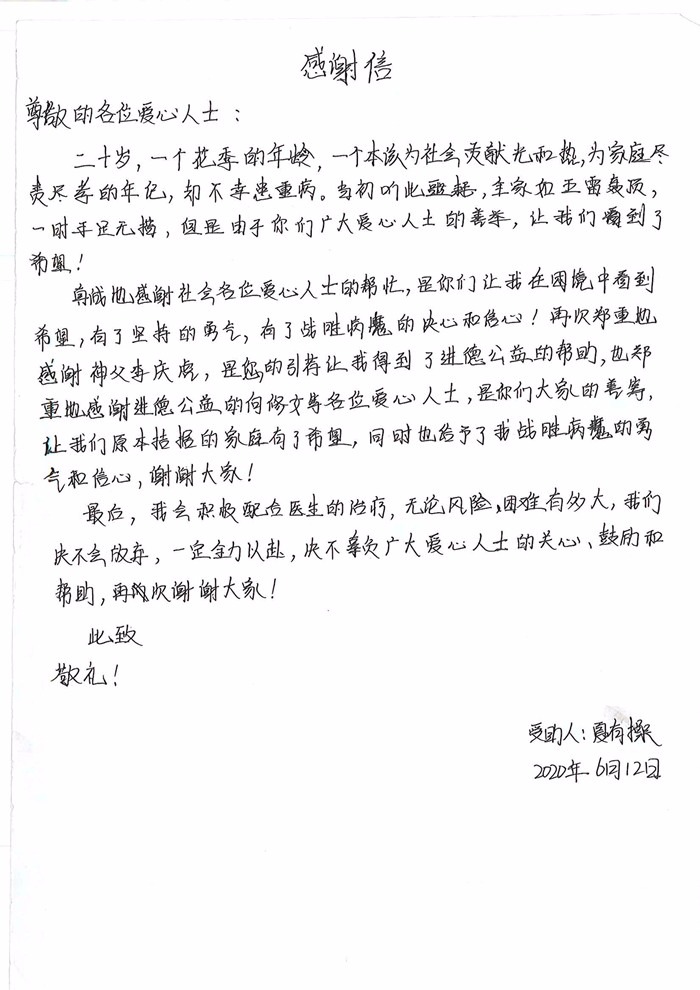 感谢信
尊敬的各位爱心人士：
二十岁，一个花季的年龄，一个本该为社会贡献光和热，为家庭尽
责尽孝的年纪，却不幸患重病。当初听此噩耗，全家如五雷轰顶，
一时手足无措，但是由于你们广大爱心人士的善举，让我们看到了
希望！
真诚地感谢社会各位爱心人士的帮忙，是你们让我在困境中看到
希望，有了坚持的勇气，有了战胜病魔的决心和信心！再次郑重地
感谢神父李庆虎，是您的引荐让我得到了进德公益的帮助，也郑
重地感谢进德公益的何修文等各位爱心人士，是你们大家的善筹，
让我们原本拮据的家庭有了希望，同时也给予了我战胜病魔的勇
气和信心，谢谢大家！
最后，我会积极配合医生的治疗，无论风险、困难有多大，我们
决不会放弃，一定全力以赴，决不辜负广大爱心人士的关心、鼓励和
帮助，再次谢谢大家！
此致
敬礼！
受助人：夏有
2020年6月12日